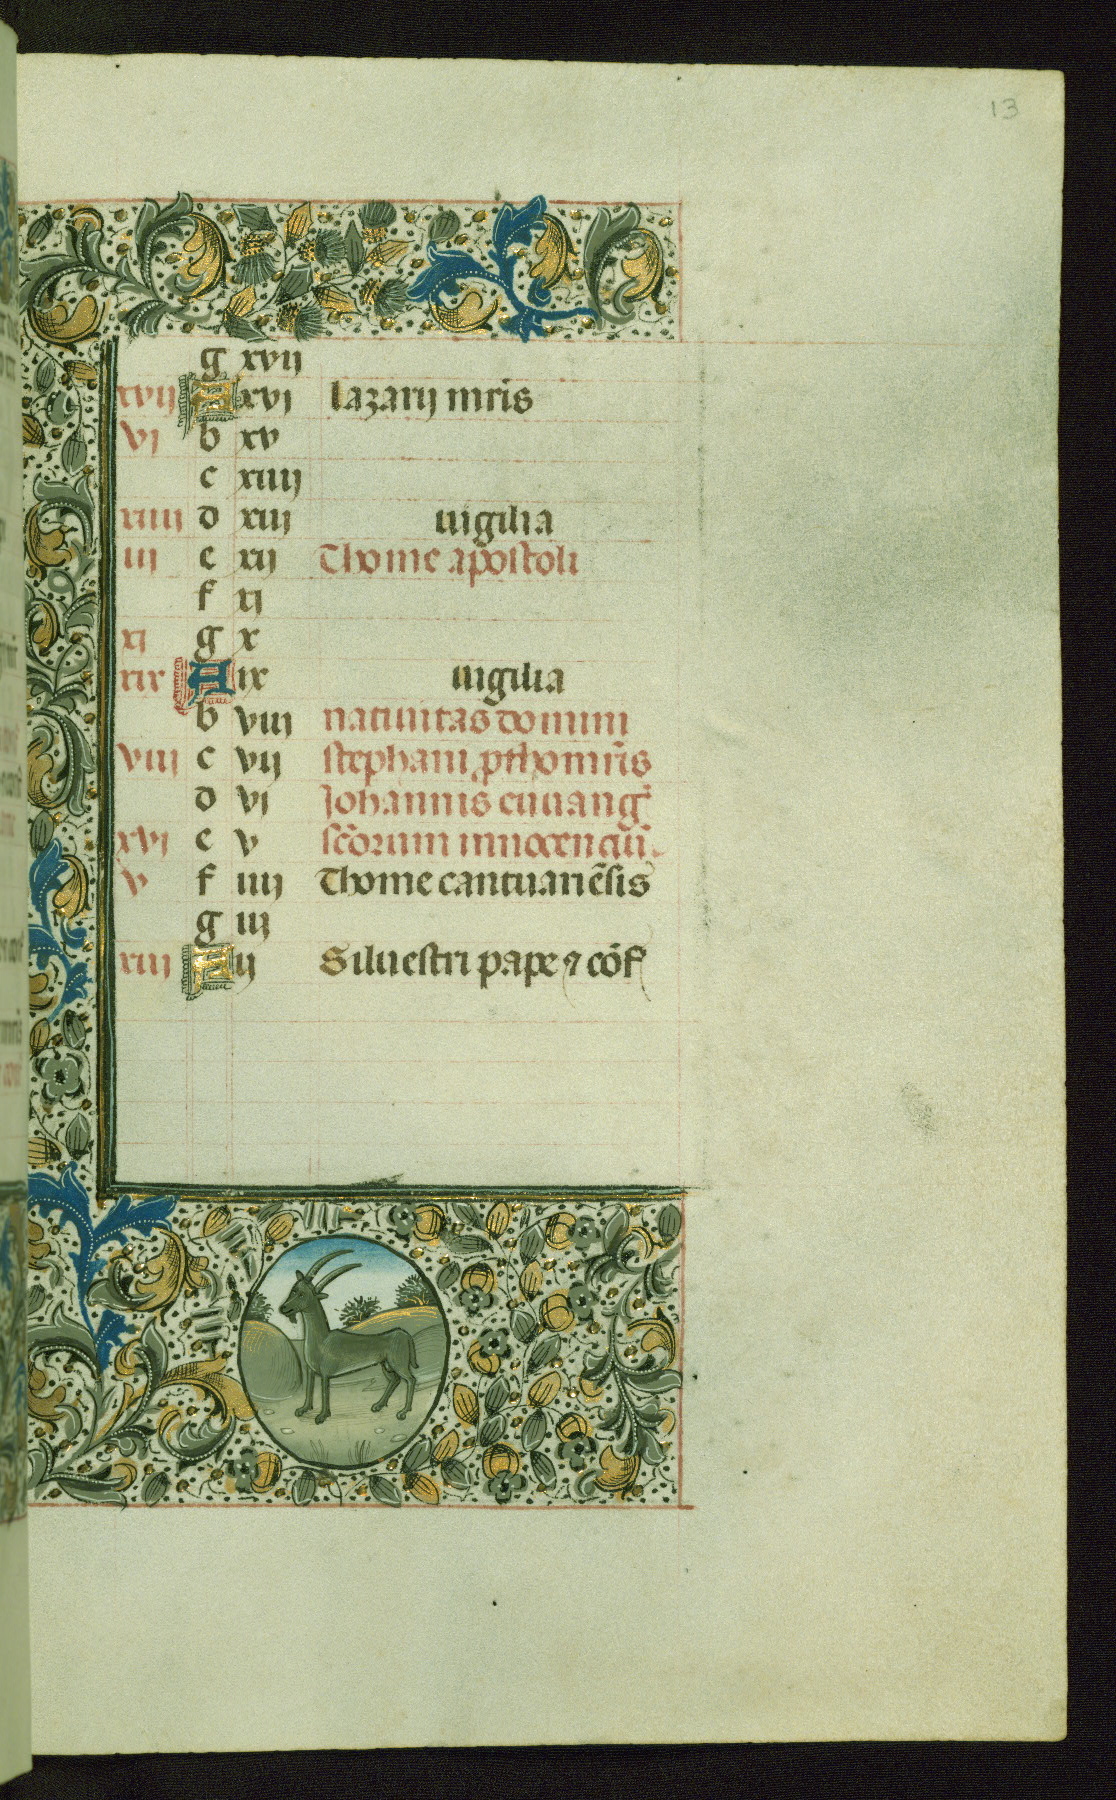 13
g xvii
xvii A xvi lazarij mr̄is
vi b xv
c xiiii
xiiii d xiii uigilia
iii e xii Thome ap̄ostoli
f xi
xi g x
xix A ix uigilia
b viii natiuitas domini
viii c vii stephani ꝓthomr̄is
d vi Johannis euuanḡ
xvi e v sc̄orum innocenciū
v f iiii Thome cantuariēsis
g iii
xiii A ii Siluestri pape ⁊ cōf